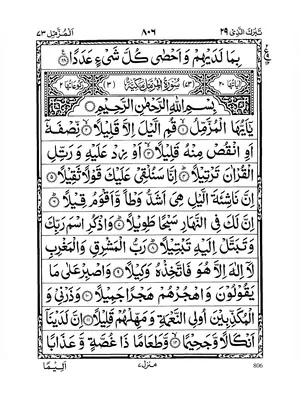 تبٰرك الذی ٢٩
٨٠٦
المزمل ٧٣
بِمَا لَدَيْهِمْ وَاَحْصٰى كُلَّ شَىْءٍ عَدَدًا ﴿٢٨﴾
سُوْرَةُ الْمُزَّمِّلِ مَكِّيَّةٌ
بِسْمِ اللهِ الرَّحْمٰنِ الرَّحِيْمِ
يٰۤاَيُّهَا الْمُزَّمِّلُ ﴿١﴾ قُمِ الَّيْلَ اِلَّا قَلِيْلًا ﴿٢﴾ نِّصْفَهٗۤ
اَوِ انْقُصْ مِنْهُ قَلِيْلًا ﴿٣﴾ اَوْ زِدْ عَلَيْهِ وَرَتِّلِ
الْقُرْاٰنَ تَرْتِيْلًا ﴿٤﴾ اِنَّا سَنُلْقِىْ عَلَيْكَ قَوْلًا ثَقِيْلًا ﴿٥﴾
اِنَّ نَاشِئَةَ الَّيْلِ هِىَ اَشَدُّ وَطْاً وَّاَقْوَمُ قِيْلًا ﴿٦﴾
اِنَّ لَكَ فِى النَّهَارِ سَبْحًا طَوِيْلًا ﴿٧﴾ وَاذْكُرِ اسْمَ رَبِّكَ
وَتَبَتَّلْ اِلَيْهِ تَبْتِيْلًا ﴿٨﴾ رَبُّ الْمَشْرِقِ وَالْمَغْرِبِ
لَاۤ اِلٰهَ اِلَّا هُوَ فَاتَّخِذْهُ وَكِيْلًا ﴿٩﴾ وَاصْبِرْ عَلٰى مَا
يَقُوْلُوْنَ وَاهْجُرْهُمْ هَجْرًا جَمِيْلًا ﴿١٠﴾ وَذَرْنِىْ وَ
الْمُكَذِّبِيْنَ اُولِى النَّعْمَةِ وَمَهِّلْهُمْ قَلِيْلًا ﴿١١﴾ اِنَّ لَدَيْنَاۤ
اَنْكَالًا وَّجَحِيْمًا ﴿١٢﴾ وَّطَعَامًا ذَا غُصَّةٍ وَّعَذَابًا
اَلِيْمًا
منزل ٧
806